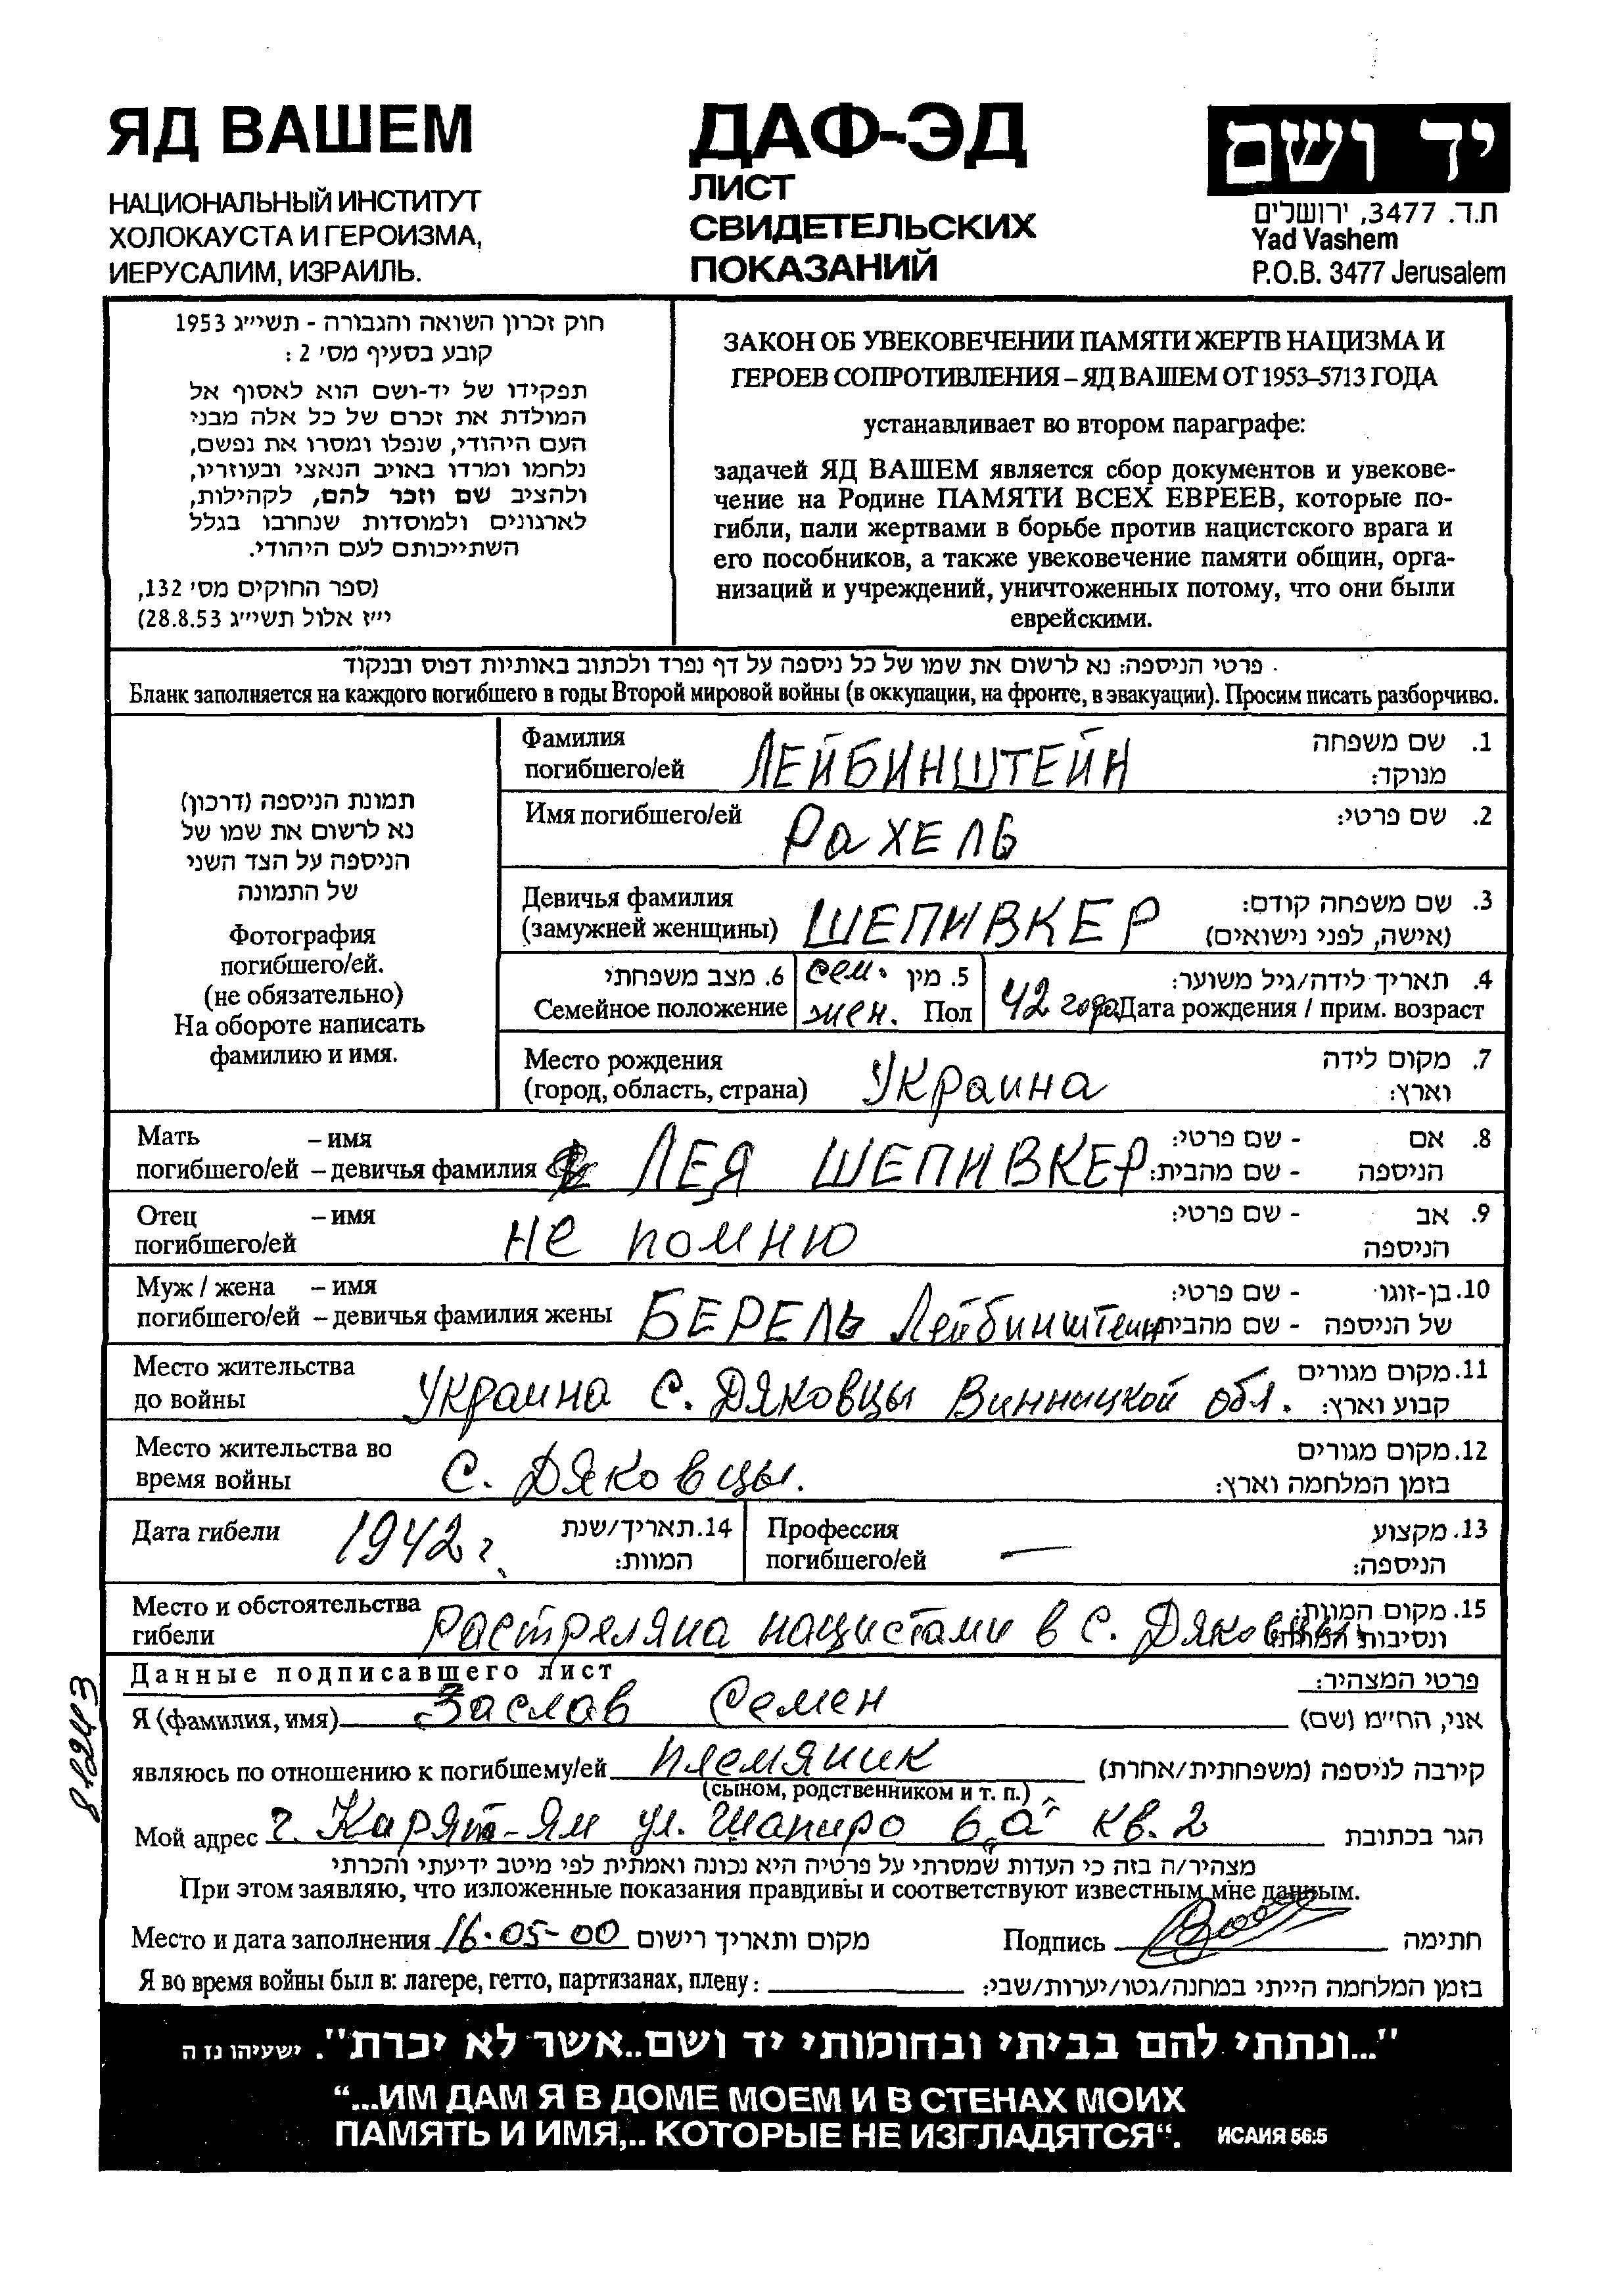 ЯД ВАШЕМ
НАЦИОНАЛЬНЫЙ ИНСТИТУТ
ХОЛОКАУСТА И ГЕРОИЗМА,
ИЕРУСАЛИМ, ИЗРАИЛЬ.
ДАФ-ЭД
ЛИСТ
СВИДЕТЕЛЬСКИХ
ПОКАЗАНИЙ
יד ושם
ת.ד. 3477, ירושלים
Yad Vashem
P.O.B. 3477 Jerusalem
חוק זכרון השואה והגבורה - תשי״ג 1953
קובע בסעיף מס׳ 2 :
תפקידו של יד-ושם הוא לאסוף אל
המולדת את זכרם של כל אלה מבני
העם היהודי, שנפלו ומסרו את נפשם,
נלחמו ומרדו באויב הנאצי ובעוזריו,
ולהציב שם וזכר להם, לקהילות,
לארגונים ולמוסדות שנחרבו בגלל
השתייכותם לעם היהודי.
(ספר החוקים מס׳ 132,
י״ז אלול תשי״ג 28.8.53)
ЗАКОН ОБ УВЕКОВЕЧЕНИИ ПАМЯТИ ЖЕРТВ НАЦИЗМА И
ГЕРОЕВ СОПРОТИВЛЕНИЯ – ЯД ВАШЕМ ОТ 1953–5713 ГОДА
устанавливает во втором параграфе:
задачей ЯД ВАШЕМ является сбор документов и увекове-
чение на Родине ПАМЯТИ ВСЕХ ЕВРЕЕВ, которые по-
гибли, пали жертвами в борьбе против нацистского врага и
его пособников, а также увековечение памяти общин, орга-
низаций и учреждений, уничтоженных потому, что они были
еврейскими.
פרטי הניספה: נא לרשום את שמו של כל ניספה על דף נפרד ולכתוב באותיות דפוס ובנקוד
Бланк заполняется на каждого погибшего в годы Второй мировой войны (в оккупации, на фронте, в эвакуации). Просим писать разборчиво.
תמונת הניספה (דרכון)
נא לרשום את שמו של
הניספה על הצד השני
של התמונה
Фотография
погибшего/ей.
(не обязательно)
На обороте написать
фамилию и имя.
Фамилия
погибшего/ей ЛЕЙБИНШТЕЙН
1. שם משפחה
מנוקד:
Имя погибшего/ей РАХЕЛЬ 2. שם פרטי:
Девичья фамилия
(замужней женщины) ШЕПИВКЕР
3. שם משפחה קודם:
(אישה, לפני נישואים)
6. מצב משפחתי сем. 5. מין
Семейное положение жен. Пол
4. תאריך לידה/גיל משוער:
42 года Дата рождения / прим. возраст
Место рождения
(город, область, страна) Украина
7. מקום לידה
וארץ:
Мать – имя
погибшего/ей – девичья фамилия ЛЕЯ ШЕПИВКЕР
8. אם - שם פרטי:
הניספה - שם מהבית:
Отец – имя
погибшего/ей не помню
9. אב - שם פרטי:
הניספה
Муж / жена – имя
погибшего/ей – девичья фамилия жены БЕРЕЛЬ Лейбинштейн
10. בן-זוגו - שם פרטי:
של הניספה - שם מהבית
Место жительства
до войны Украина с. Дяковцы Винницкой обл.
11. מקום מגורים
קבוע וארץ:
Место жительства во
время войны с. Дяковцы.
12. מקום מגורים
בזמן המלחמה וארץ:
Дата гибели 1942 г.
14. תאריך/שנת
המוות:
Профессия
погибшего/ей –
13. מקצוע
הניספה:
Место и обстоятельства
гибели Растреляна нацистами в с. Дяковцы
15. מקום המוות
ונסיבות המוות:
Данные подписавшего лист פרטי המצהיר:
Я (фамилия, имя) Заслав Семен אני, החי״מ (שם)
являюсь по отношению к погибшему/ей племяник קירבה לניספה (משפחתית/אחרת)
(сыном, родственником и т. п.)
Мой адрес г. Кирят-Ям ул. Шапиро 6 „а" кв. 2 הגר בכתובת
מצהיר/ה בזה כי העדות שמסרתי על פרטיה היא נכונה ואמתית לפי מיטב ידיעתי והכרתי
При этом заявляю, что изложенные показания правдивы и соответствуют известным мне данным.
Место и дата заполнения 16.05-00 מקום ותאריך רישום Подпись חתימה
Я во время войны был в: лагере, гетто, партизанах, плену: בזמן המלחמה הייתי במחנה/גטו/יערות/שבי:
81243
"...ונתתי להם בביתי ובחומותי יד ושם..אשר לא יכרת". ישעיהו נז ה
“...ИМ ДАМ Я В ДОМЕ МОЕМ И В СТЕНАХ МОИХ
ПАМЯТЬ И ИМЯ,.. КОТОРЫЕ НЕ ИЗГЛАДЯТСЯ“. ИСАИЯ 56:5